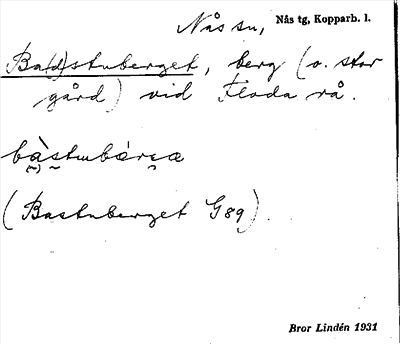 Nås sn, Nås tg, Kopparb. l.
Ba(d)stuberget, berg (o. stor
gård) vid Floda rå.
bàstubárɛa
(Bastuberget G89).
Bror Lindén 1931